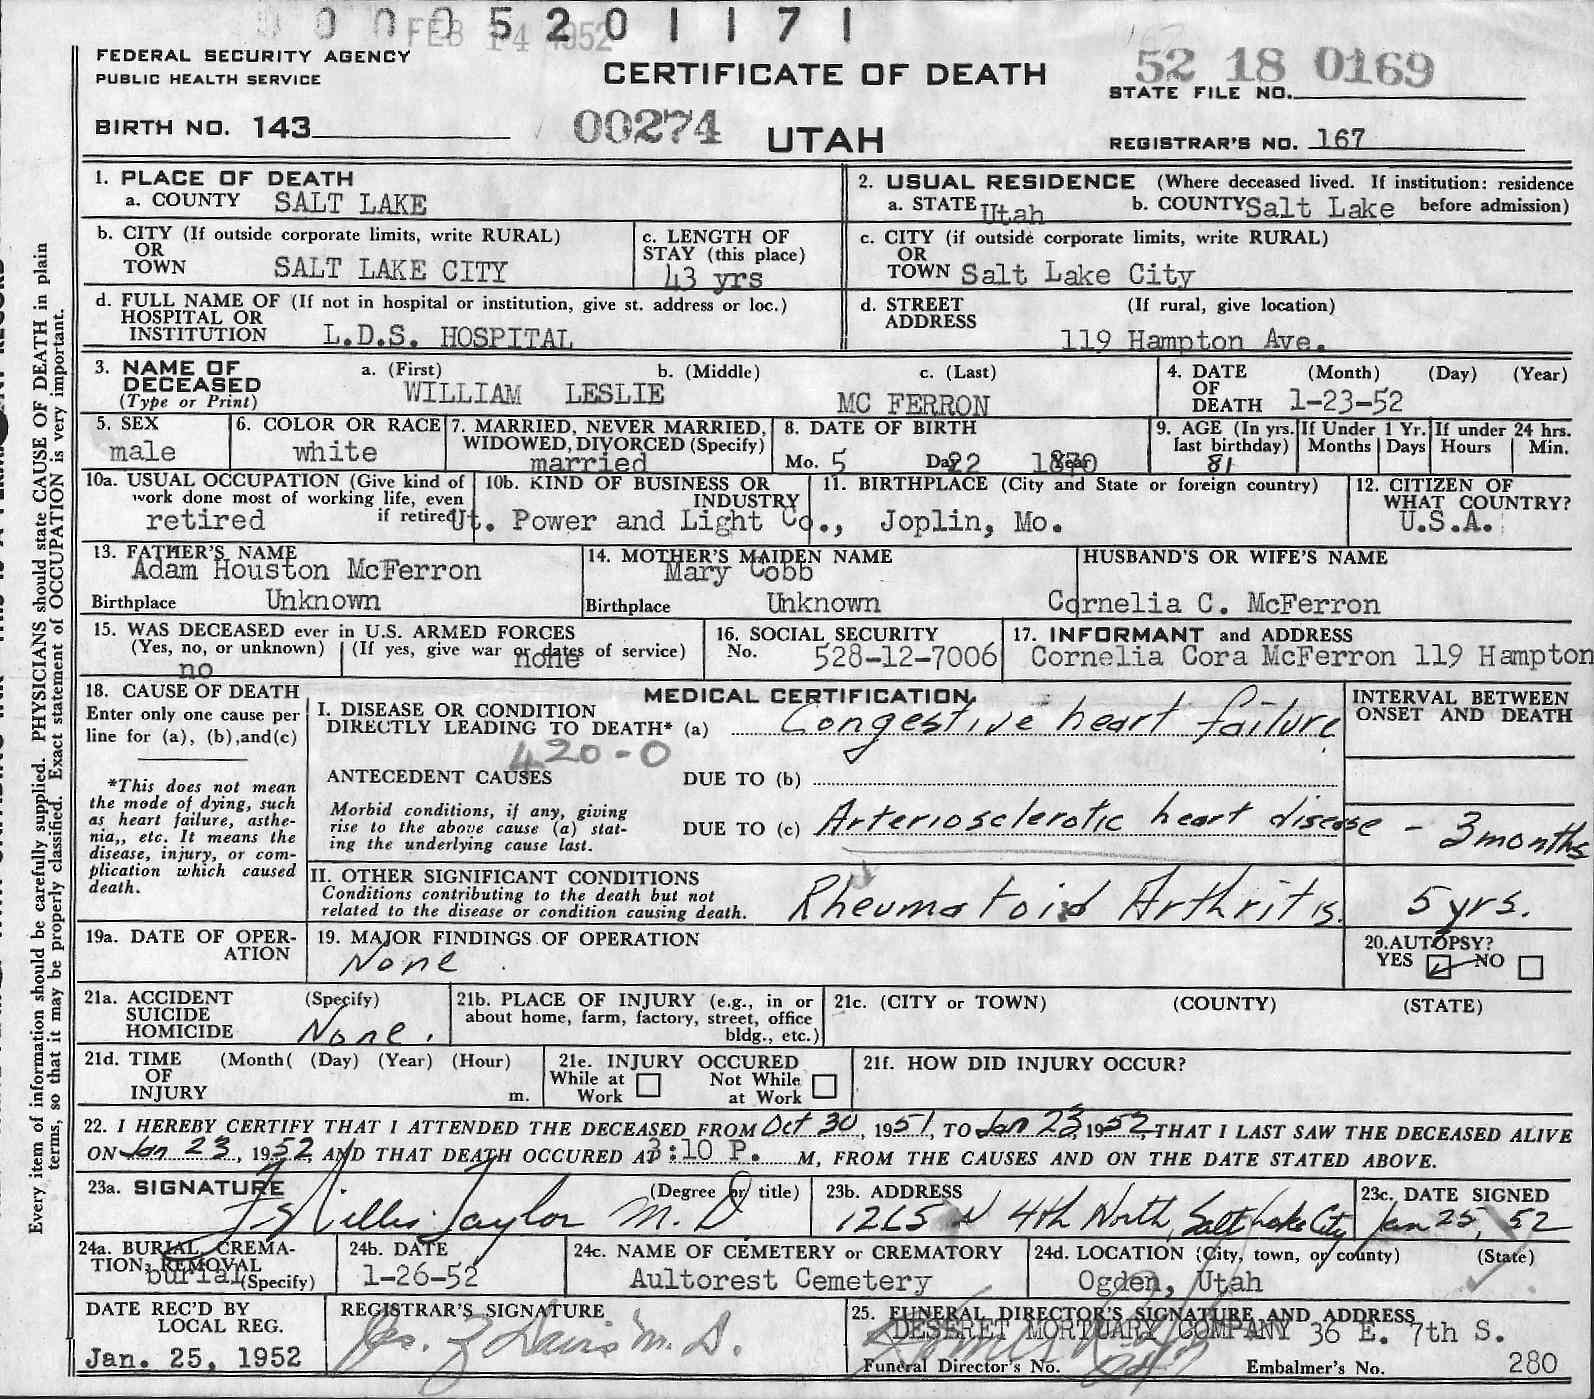 0 0 0 0 5 2 0 1 1 7 1
FEB 14 1952
FEDERAL SECURITY AGENCY
PUBLIC HEALTH SERVICE
CERTIFICATE OF DEATH
52 18 0169
STATE FILE NO.
BIRTH NO. 143
00274
UTAH
REGISTRAR'S NO. 167
1. PLACE OF DEATH
a. COUNTY SALT LAKE
2. USUAL RESIDENCE (Where deceased lived. If institution: residence
a. STATE Utah b. COUNTY Salt Lake before admission)
b. CITY (If outside corporate limits, write RURAL)
OR
TOWN SALT LAKE CITY
c. LENGTH OF
STAY (this place)
43 yrs
c. CITY (if outside corporate limits, write RURAL)
OR
TOWN Salt Lake City
d. FULL NAME OF (If not in hospital or institution, give st. address or loc.)
HOSPITAL OR
INSTITUTION L.D.S. HOSPITAL
d. STREET (If rural, give location)
ADDRESS
119 Hampton Ave.
3. NAME OF a. (First) b. (Middle) c. (Last)
DECEASED
(Type or Print) WILLIAM LESLIE MC FERRON
4. DATE (Month) (Day) (Year)
OF
DEATH 1-23-52
5. SEX
male
6. COLOR OR RACE
white
7. MARRIED, NEVER MARRIED,
WIDOWED, DIVORCED (Specify)
married
8. DATE OF BIRTH
Mo. 5 Day 22 Year 1870
9. AGE (In yrs.
last birthday)
81
If Under 1 Yr.
Months Days
If under 24 hrs.
Hours Min.
10a. USUAL OCCUPATION (Give kind of
work done most of working life, even
if retired
retired
10b. KIND OF BUSINESS OR
INDUSTRY
Ut. Power and Light Co.,
11. BIRTHPLACE (City and State or foreign country)
Joplin, Mo.
12. CITIZEN OF
WHAT COUNTRY?
U.S.A.
13. FATHER'S NAME
Adam Houston McFerron
Birthplace Unknown
14. MOTHER'S MAIDEN NAME
Mary Cobb
Birthplace Unknown
HUSBAND'S OR WIFE'S NAME
Cornelia C. McFerron
15. WAS DECEASED ever in U.S. ARMED FORCES
(Yes, no, or unknown) (If yes, give war or dates of service)
no none
16. SOCIAL SECURITY
No. 528-12-7006
17. INFORMANT and ADDRESS
Cornelia Cora McFerron 119 Hampton
18. CAUSE OF DEATH
Enter only one cause per
line for (a), (b),and(c)
*This does not mean
the mode of dying, such
as heart failure, asthe-
nia,, etc. It means the
disease, injury, or com-
plication which caused
death.
MEDICAL CERTIFICATION
I. DISEASE OR CONDITION
DIRECTLY LEADING TO DEATH* (a) Congestive heart failure
420-0
ANTECEDENT CAUSES DUE TO (b)
Morbid conditions, if any, giving
rise to the above cause (a) stat-
ing the underlying cause last.
DUE TO (c) Arteriosclerotic heart disease - 3 months
INTERVAL BETWEEN
ONSET AND DEATH
II. OTHER SIGNIFICANT CONDITIONS
Conditions contributing to the death but not
related to the disease or condition causing death.
Rheumatoid Arthritis. 5 yrs.
19a. DATE OF OPER-
ATION
19. MAJOR FINDINGS OF OPERATION
None
20.AUTOPSY?
YES NO
21a. ACCIDENT (Specify)
SUICIDE
HOMICIDE None.
21b. PLACE OF INJURY (e.g., in or
about home, farm, factory, street, office
bldg., etc.)
21c. (CITY or TOWN) (COUNTY) (STATE)
21d. TIME (Month( (Day) (Year) (Hour)
OF
INJURY m.
21e. INJURY OCCURED
While at Not While
Work at Work
21f. HOW DID INJURY OCCUR?
22. I HEREBY CERTIFY THAT I ATTENDED THE DECEASED FROM Oct 30, 1951, TO Jan 23, 1952, THAT I LAST SAW THE DECEASED ALIVE
ON Jan 23, 1952, AND THAT DEATH OCCURED AT 3:10 P. M, FROM THE CAUSES AND ON THE DATE STATED ABOVE.
23a. SIGNATURE (Degree or title)
Willis Taylor M.D
23b. ADDRESS
1265 4th North, Salt Lake City
23c. DATE SIGNED
Jan 25, 52
24a. BURIAL, CREMA-
TION, REMOVAL
burial (Specify)
24b. DATE
1-26-52
24c. NAME OF CEMETERY or CREMATORY
Aultorest Cemetery
24d. LOCATION (City, town, or county) (State)
Ogden, Utah
DATE REC'D BY
LOCAL REG.
Jan. 25, 1952
REGISTRAR'S SIGNATURE
Davis M. D.
25. FUNERAL DIRECTOR'S SIGNATURE AND ADDRESS
DESERET MORTUARY COMPANY 36 E. 7th S.
Funeral Director's No. Embalmer's No. 280
Every item of information should be carefully supplied. PHYSICIANS should state CAUSE OF DEATH in plain
terms, so that it may be properly classified. Exact statement of OCCUPATION is very important.